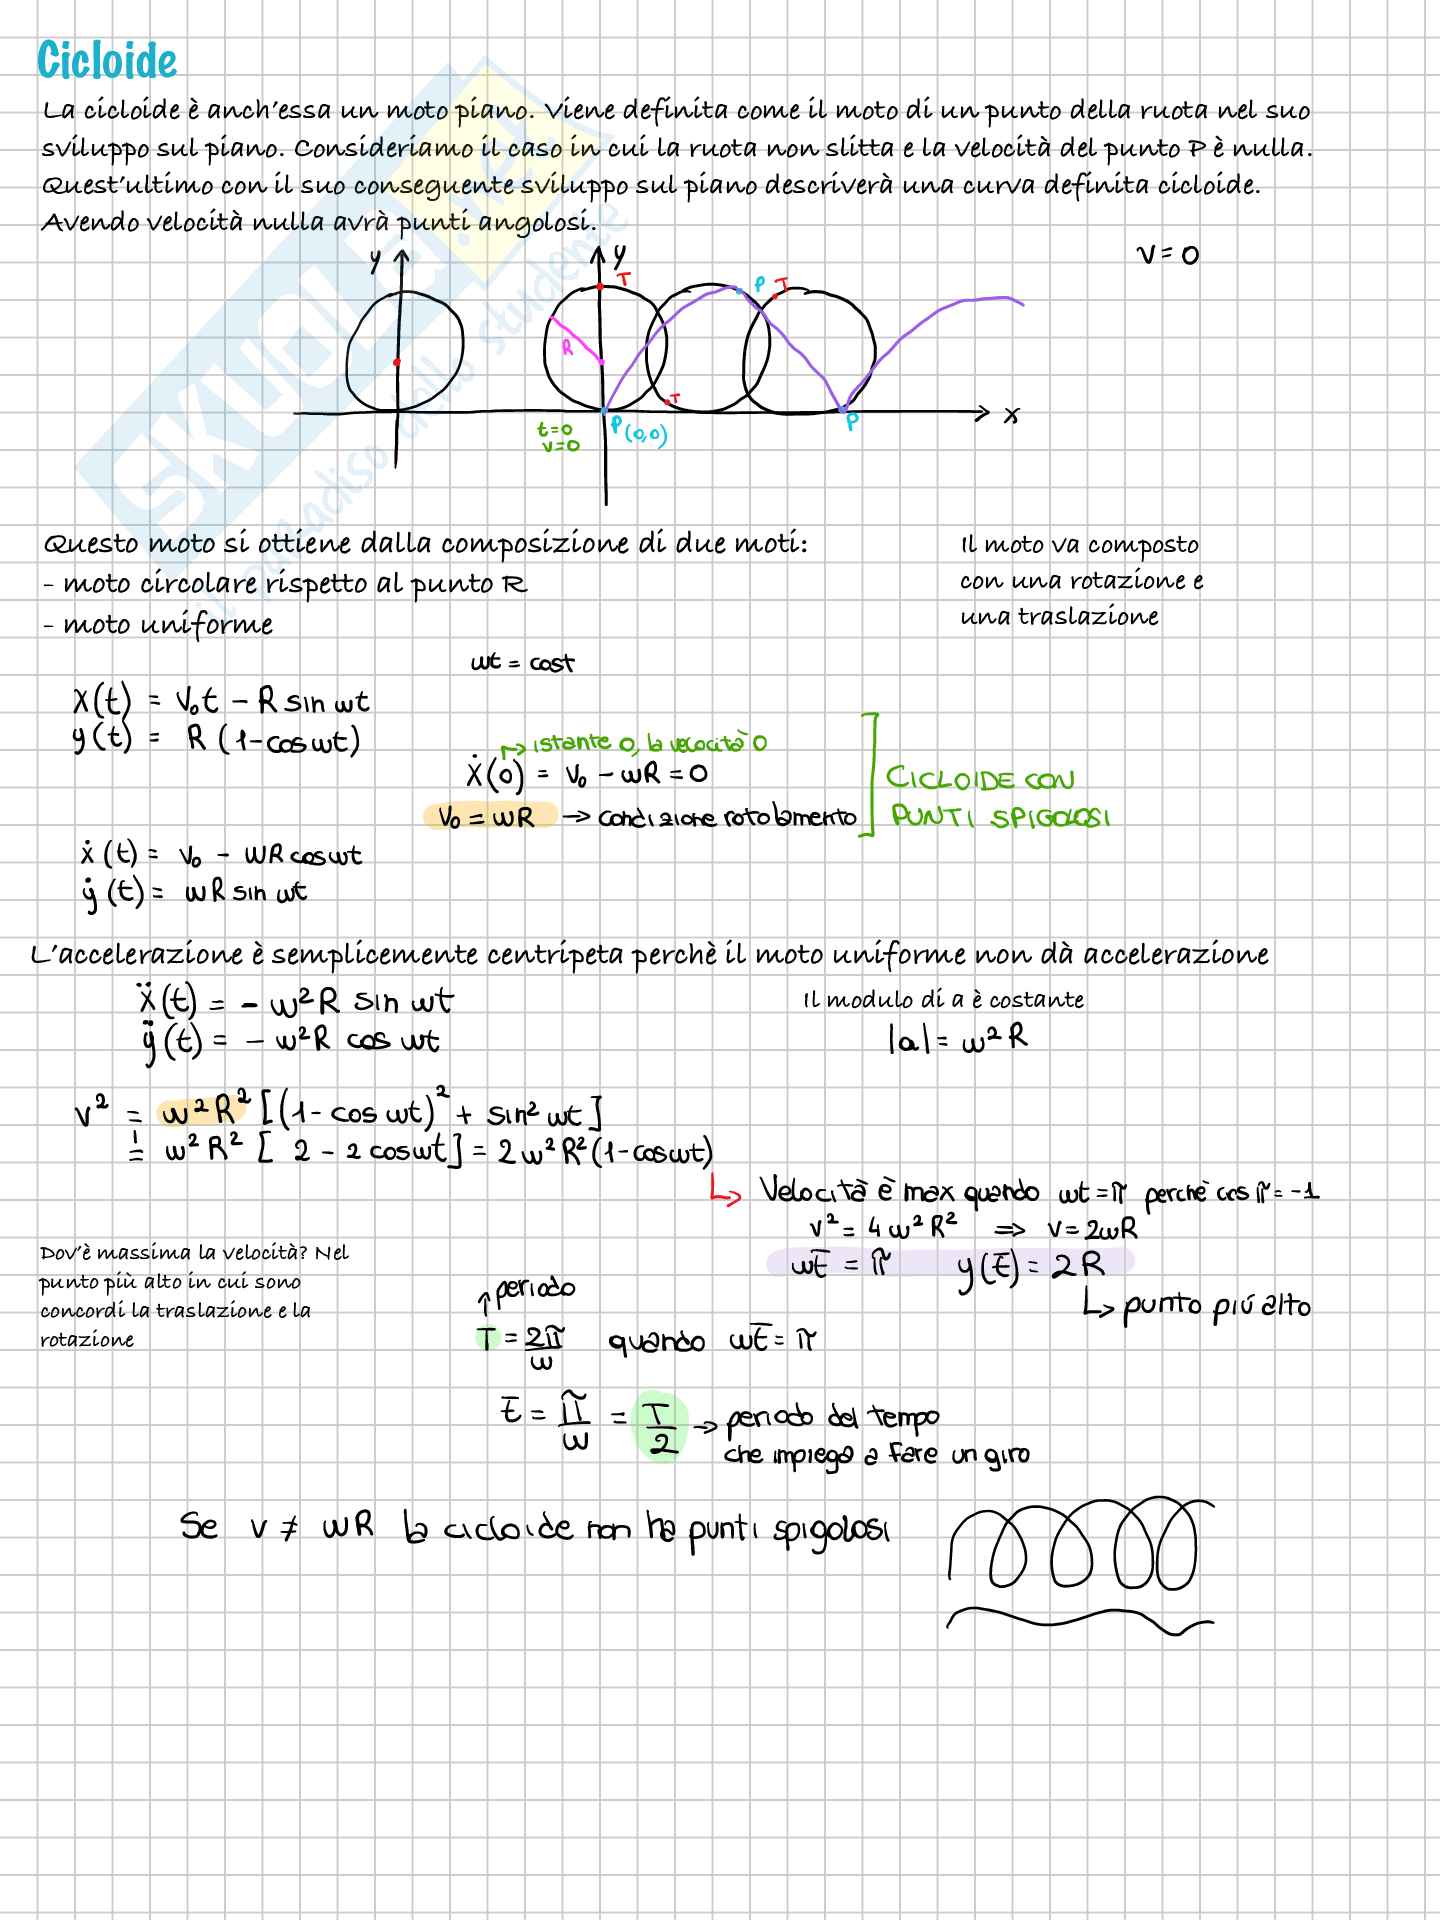 Cicloide
La cicloide è anch'essa un moto piano. Viene definita come il moto di un punto della ruota nel suo
sviluppo sul piano. Consideriamo il caso in cui la ruota non slitta e la velocità del punto P è nulla.
Quest'ultimo con il suo conseguente sviluppo sul piano descriverà una curva definita cicloide.
Avendo velocità nulla avrà punti angolosi.
SKUOLA.net
il paradiso dello studente
v = 0
y
y
T
P
T
R
T
t=0
v=0
P (0,0)
P
x
Questo moto si ottiene dalla composizione di due moti:
- moto circolare rispetto al punto R
- moto uniforme
Il moto va composto
con una rotazione e
una traslazione
wt = cost
x(t) = V₀t - R sin wt
y(t) = R (1-cos wt)
↱ istante 0, la velocità 0
ẋ(0) = V₀ - wR = 0
V₀ = wR → condizione rotolamento
CICLOIDE CON
PUNTI SPIGOLOSI
ẋ(t) = V₀ - wR cos wt
ẏ(t) = wR sin wt
L'accelerazione è semplicemente centripeta perchè il moto uniforme non dà accelerazione
ẍ(t) = - w²R sin wt
ÿ(t) = - w²R cos wt
Il modulo di a è costante
|a| = w²R
v² = w²R² [(1 - cos wt)² + sin² wt]
= w²R² [2 - 2 cos wt] = 2w²R² (1-cos wt)
↳ Velocità è max quando wt = π perchè cos π = -1
v² = 4w²R² ⇒ v = 2wR
wt̄ = π y(t̄) = 2R
↳ punto più alto
Dov'è massima la velocità? Nel
punto più alto in cui sono
concordi la traslazione e la
rotazione
periodo
T = 2π/w quando wt̄ = π
t̄ = π/w = T/2 → periodo del tempo
che impiega a fare un giro
Se v ≠ wR la cicloide non ha punti spigolosi